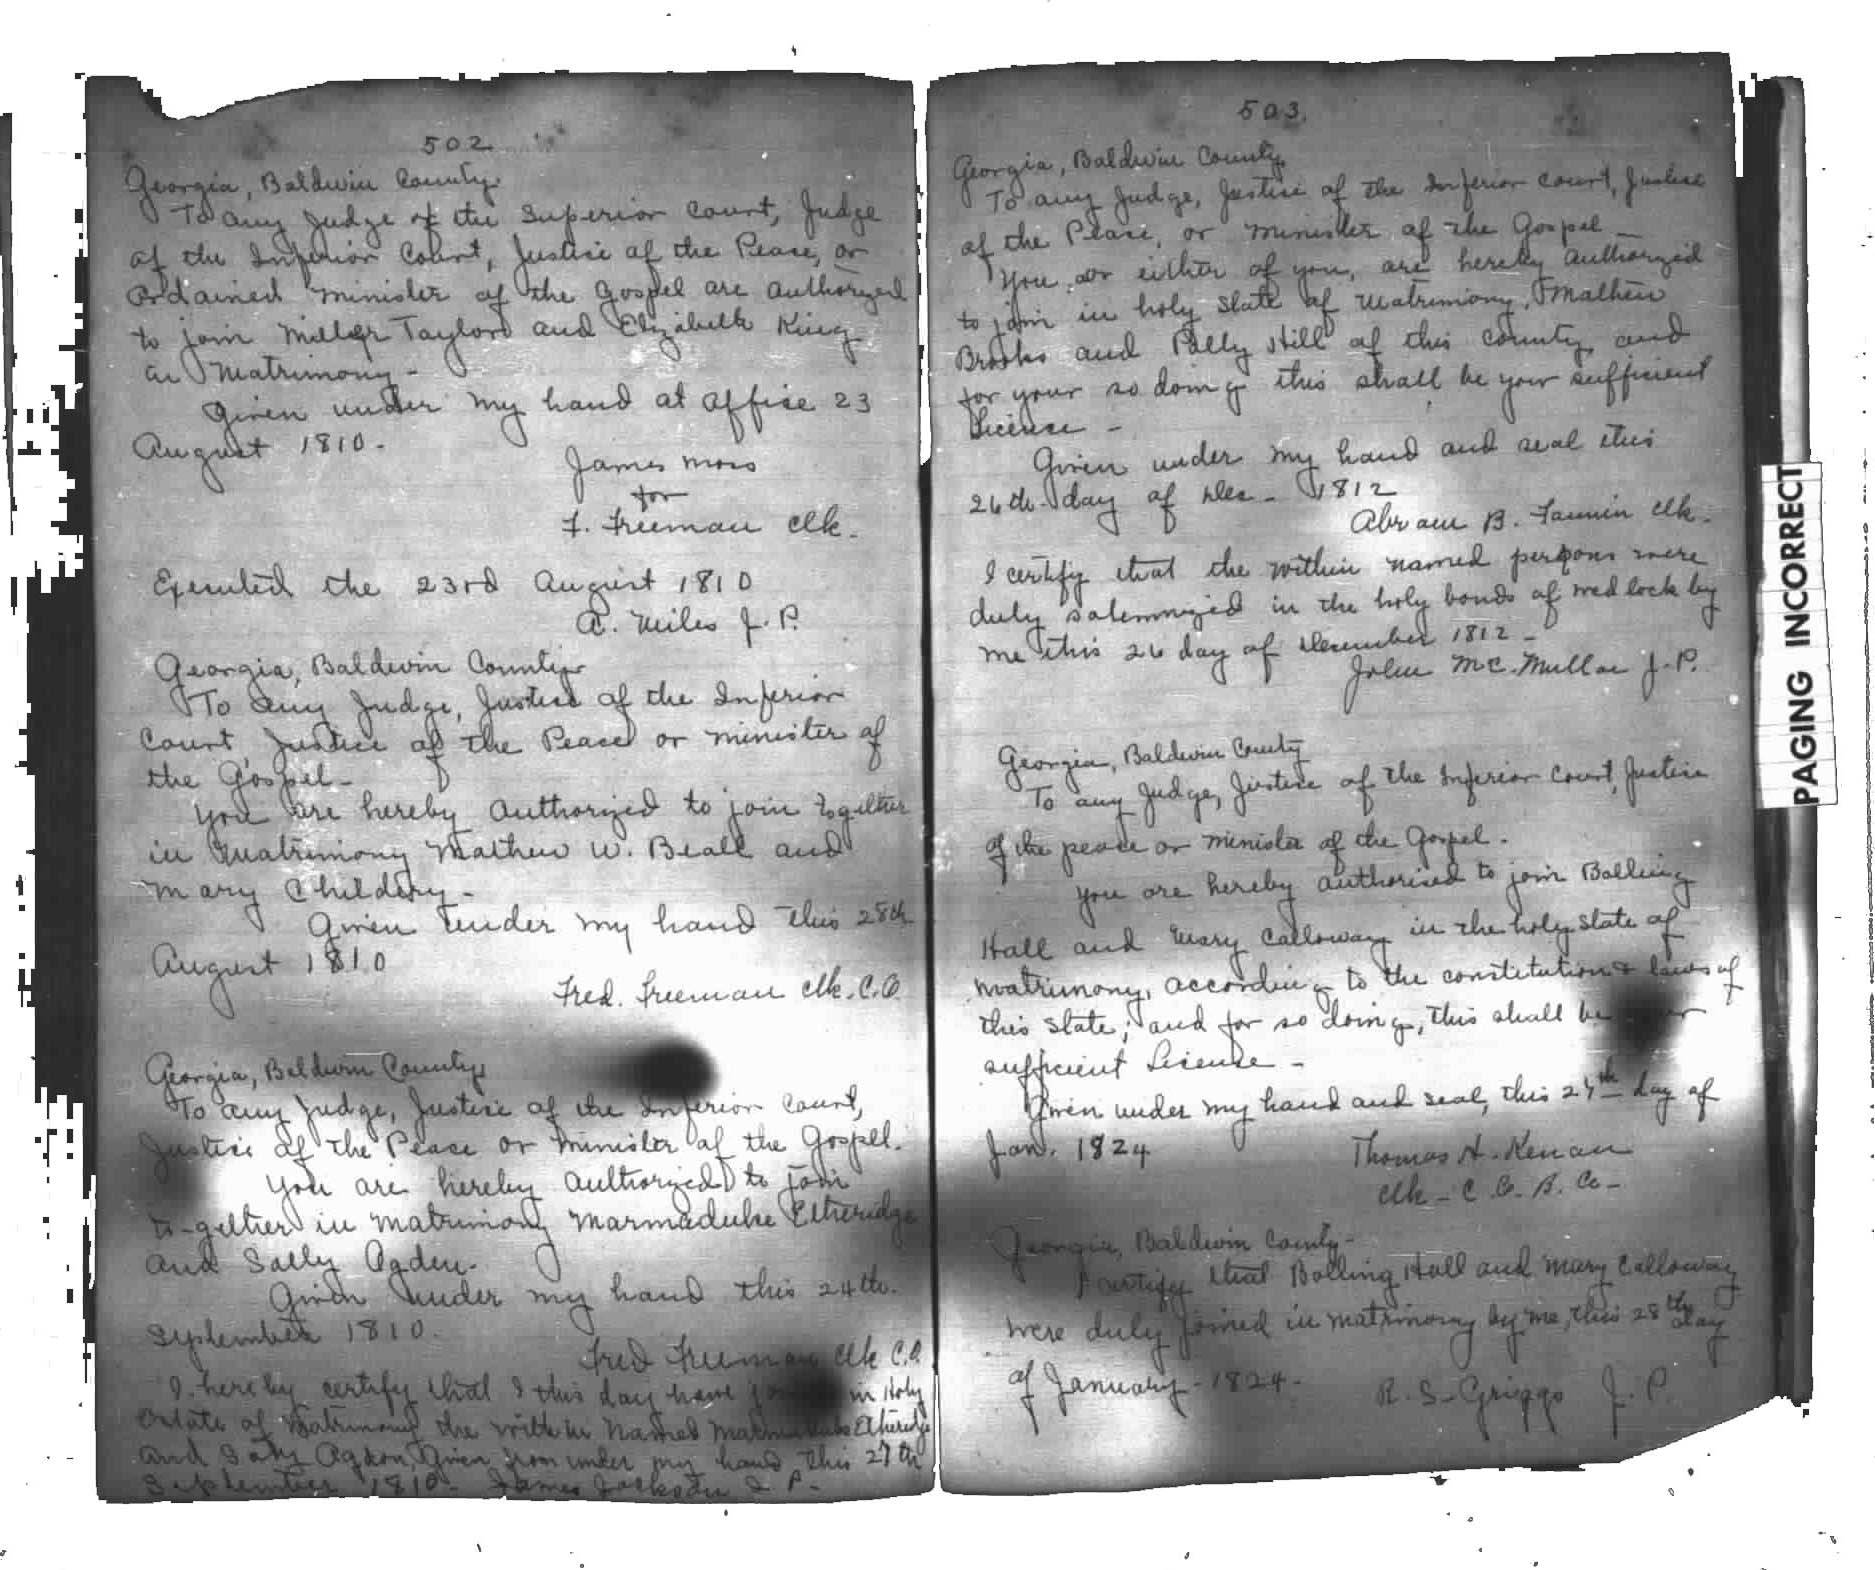 502
Georgia, Baldwin County.
To any Judge of the Superior Court, Judge
of the Inferior Court, Justice of the Peace, or
Ordained Minister of the Gospel are authorized
to join Miller Taylor and Elizabeth King
in Matrimony -
Given under my hand at office 23
August 1810 -
James Moss
for
F. Freeman Clk.
Executed the 23rd August 1810
A. Miles J. P.
Georgia, Baldwin County
To any Judge, Justice of the Inferior
Court, Justice of the Peace or Minister of
the Gospel -
You are hereby authorized to join together
in Matrimony Mathew W. Beall and
Mary Childery -
Given under my hand this 28th
August 1810
Fred. Freeman Clk. C.O.
Georgia, Baldwin County
To any Judge, Justice of the Inferior Court,
Justice of the Peace or Minister of the Gospel.
You are hereby authorized to join
to-gether in Matrimony Marmaduke Etheridge
and Sally Ogden.
Given under my hand this 24th.
September 1810.
Fred Freeman Clk C.O.
I hereby certify that I this day have in Holy
Estate of Matrimony the within named Marmaduke Etheridge
and Sally Ogden, Given from under my hand this 27th
September 1810. James Jackson J. P.
503.
Georgia, Baldwin County,
To any Judge, Justice of the Inferior Court, Justice
of the Peace, or Minister of the Gospel -
You, or either of you, are hereby authorized
to join in holy state of Matrimony, Mathew
Brooks and Polly Hill of this County, and
for your so doing this shall be your sufficient
License -
Given under my hand and seal this
26th. day of Dec - 1812
Abram B. Fannin Clk.
I certify that the within named persons were
duly solemnized in the holy bonds of wedlock by
me this 26 day of December 1812 -
John Mc.Mullar J. P.
Georgia, Baldwin County
To any Judge, Justice of the Inferior Court, Justice
of the peace or Minister of the Gospel.
You are hereby authorised to join Bolling
Hall and Mary Calloway in the holy state of
matrimony, according to the constitution & laws of
this State; and for so doing, this shall be
sufficient License -
Given under my hand and seal, this 27th day of
Jan. 1824
Thomas H. Kenan
Clk - C. O. B. Co -
Georgia, Baldwin County -
I certify that Bolling Hall and Mary Calloway
were duly joined in matrimony by me, this 28th day
of January - 1824 -
R. S. Griggs J. P.
PAGING INCORRECT